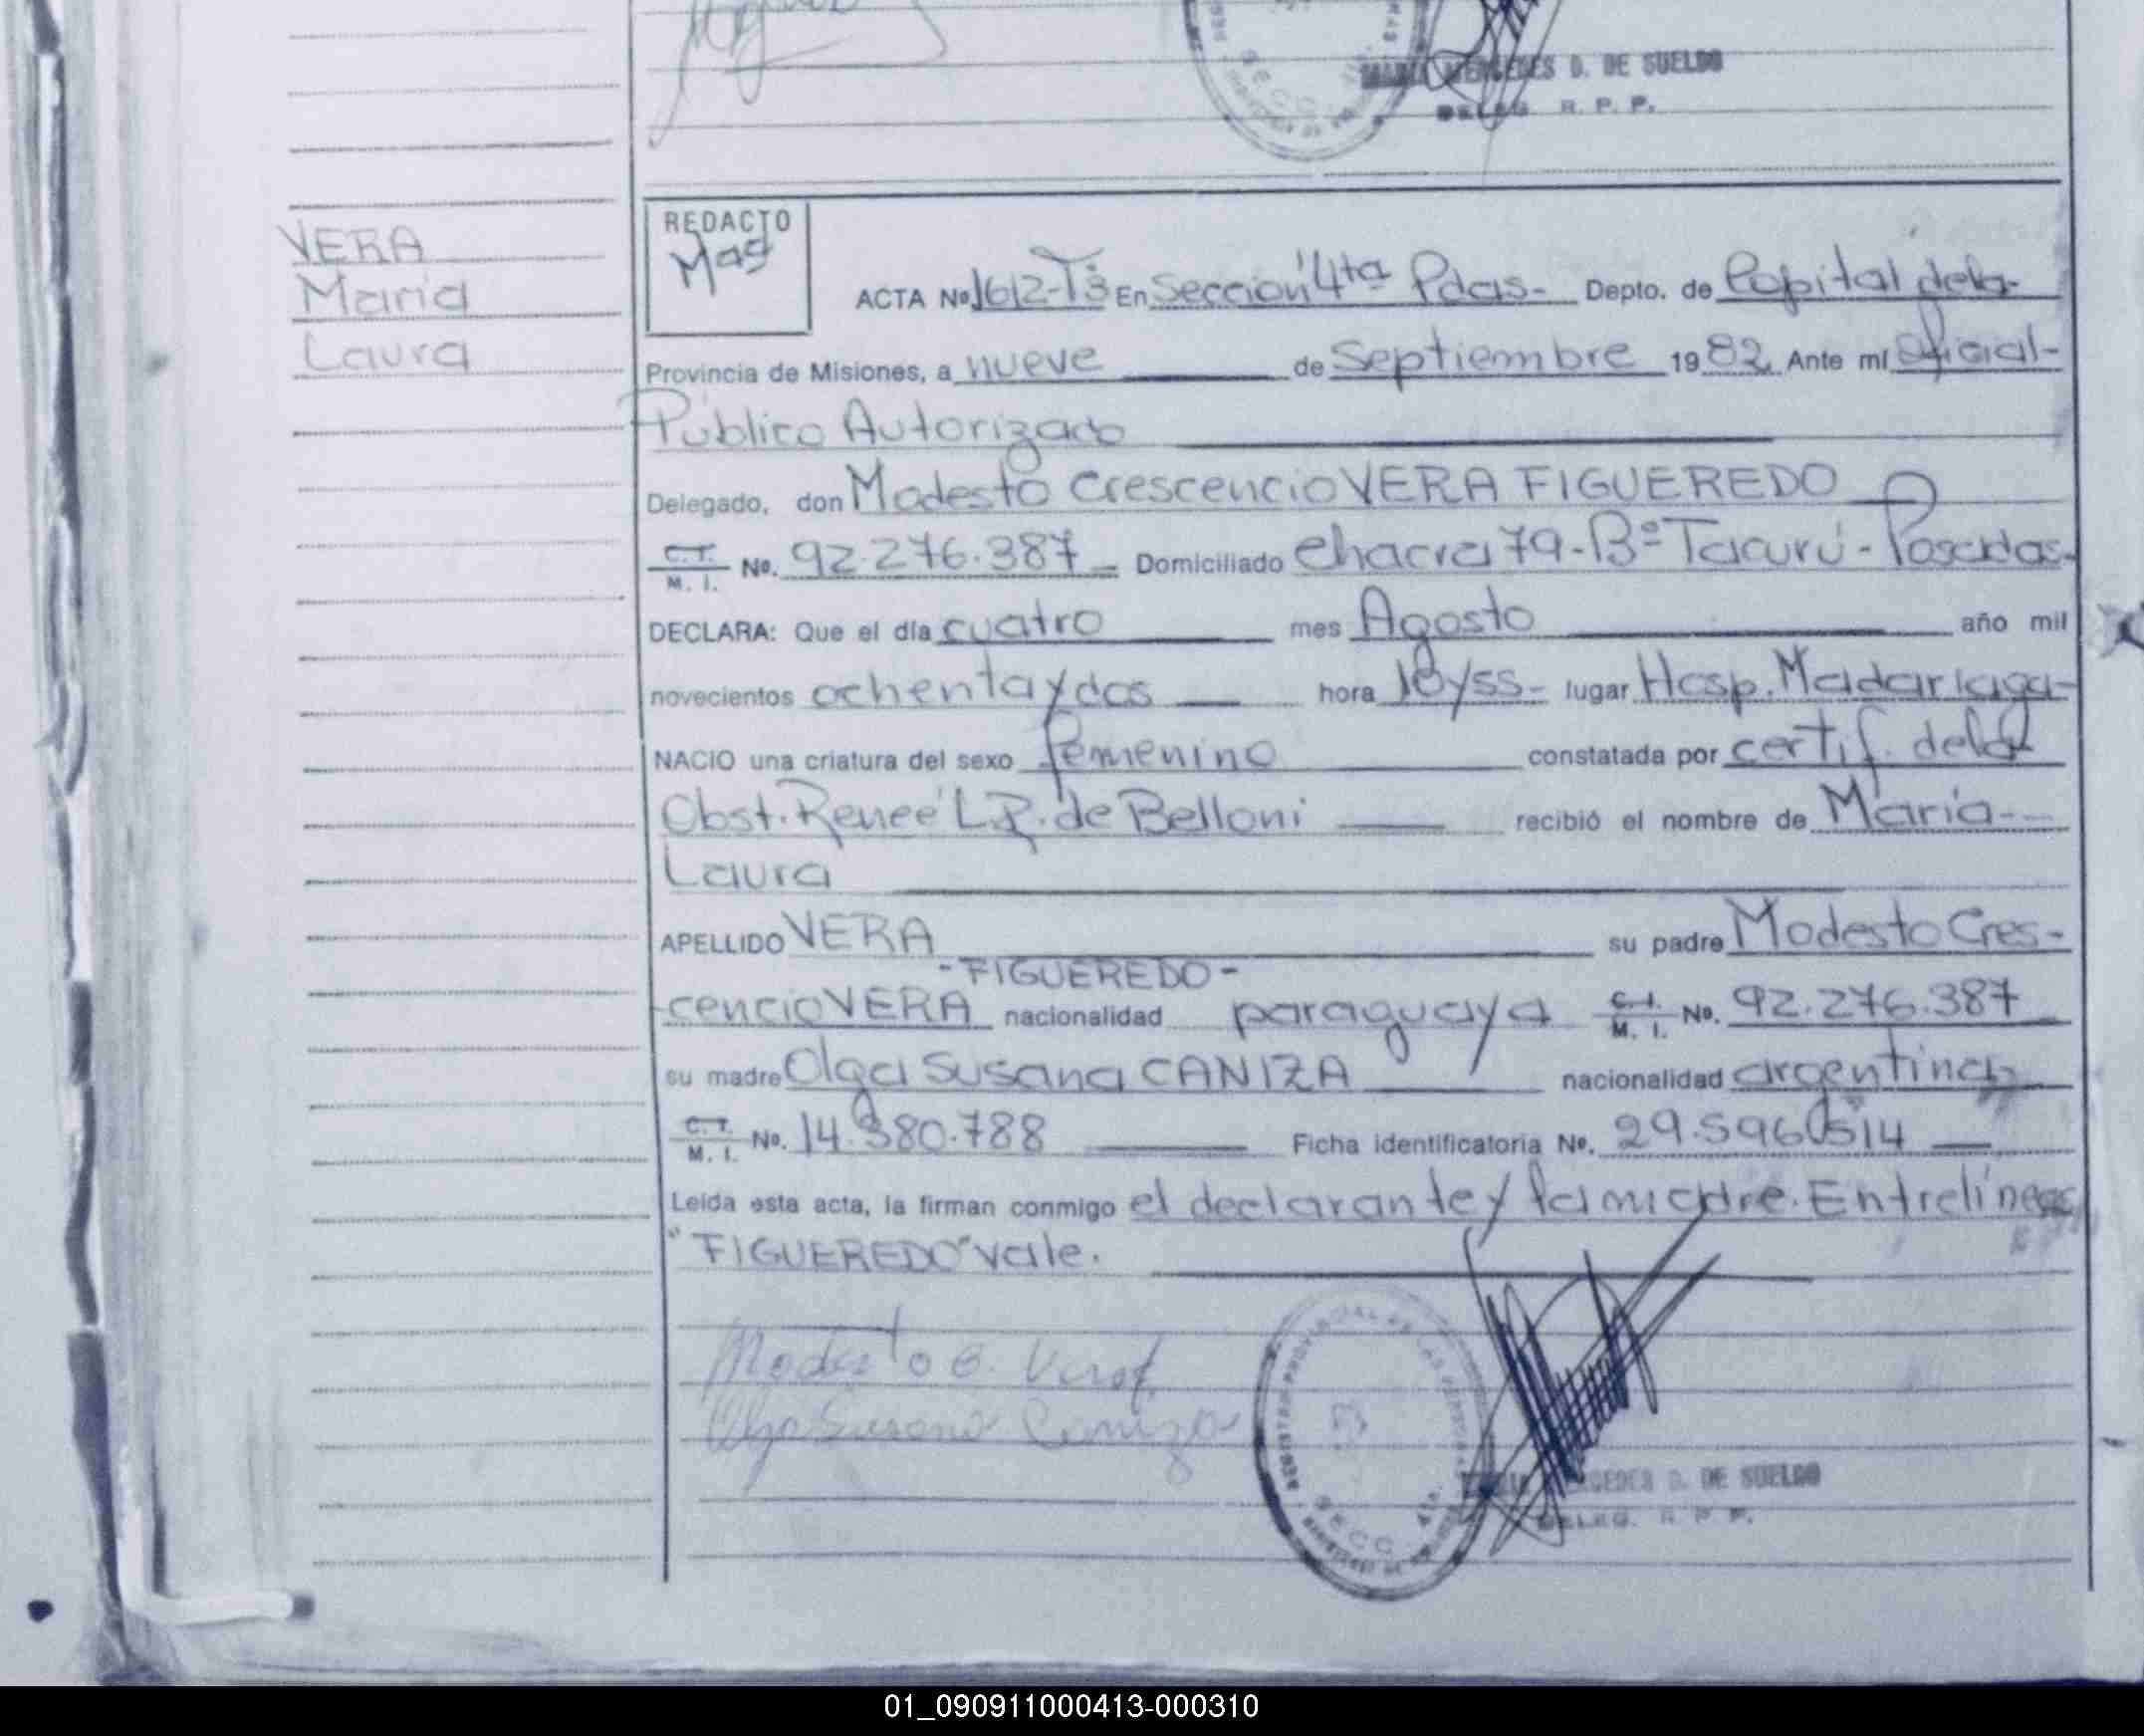 MARIA MERCEDES D. DE SUELDO
DELEG. R. P. P.
VERA
María
Laura
REDACTO
Mag
ACTA Nº 1612-T3 En Sección 4ta Pdas- Depto. de Capital dela-
Provincia de Misiones, a nueve de Septiembre 1982 Ante mí Oficial-
Público Autorizado
Delegado, don Modesto Crescencio VERA FIGUEREDO
C.I. M. I. No. 92.276.387 Domiciliado Chacra 79-Bº Tacurú-Posadas-
DECLARA: Que el día cuatro mes Agosto año mil
novecientos ochenta y dos hora 18y55- lugar Hosp. Madariaga-
NACIO una criatura del sexo femenino constatada por certif. dela
Obst. Reneé L.R. de Belloni recibió el nombre de María--
Laura
APELLIDO VERA su padre Modesto Cres-
-FIGUEREDO-
cencio VERA nacionalidad paraguaya C.I. M. I. No. 92.276.387
su madre Olga Susana CANIZA nacionalidad argentina
C.I. M. I. No. 14.380.788 Ficha identificatoria No.
Leída esta acta, la firman conmigo el declarante y la madre. Entrelíneas
"FIGUEREDO" vale.
Modesto C. Vera f.
Olga Susana Caniza
REGISTRO PROVINCIAL DE LAS PERSONAS
SECC. 4ta.
MARIA MERCEDES D. DE SUELDO
DELEG. R. P. P.
01_090911000413-000310